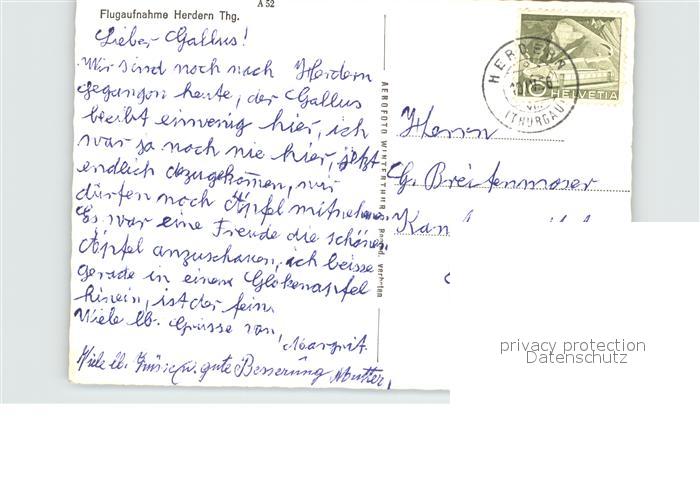 A 52
Flugaufnahme Herdern Thg.
Lieber Gallus!
Wir sind noch nach Herdern
gegangen heute, der Gallus
bleibt einwenig hier, ich
war ja noch nie hier, jetzt
endlich dazugekommen, wir
dürfen noch Äpfel mitnehmen.
Es war eine Freude die schönen
Äpfel anzuschauen, ich beisse
gerade in einen Glokenapfel
hinein, ist der fein.
Viele lb. Grüsse von
Margrit
Viele lb. Grüsse u. gute Besserung Mutter,
AEROFOTO WINTERTHUR
verboten
HERDERN
(THURGAU)
10
HELVETIA
Herrn
G. Breitenmoser
privacy protection
Datenschutz